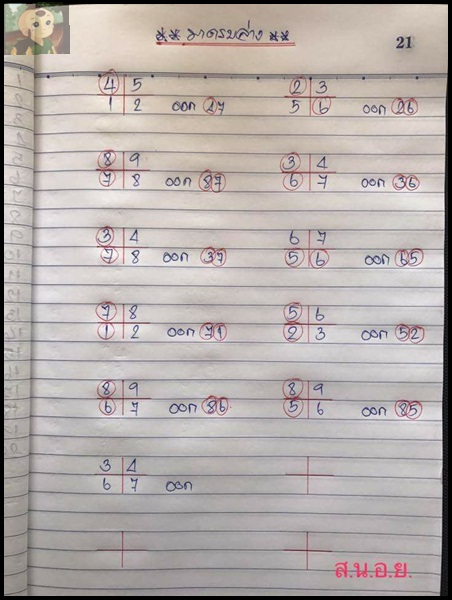 ** มาครบล่าง **
21
4 5 2 3
1 2 ออก 27 5 6 ออก 26
8 9 3 4
7 8 ออก 87 6 7 ออก 36
3 4 6 7
7 8 ออก 37 5 6 ออก 65
7 8 5 6
1 2 ออก 71 2 3 ออก 52
8 9 8 9
6 7 ออก 86 5 6 ออก 85
3 4
6 7 ออก
ส.น.อ.ย.